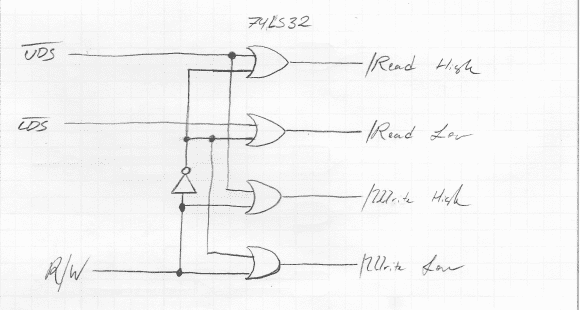 74LS32
UDS
/Read High
LDS
/Read Low
/Write High
R/W
/Write Low